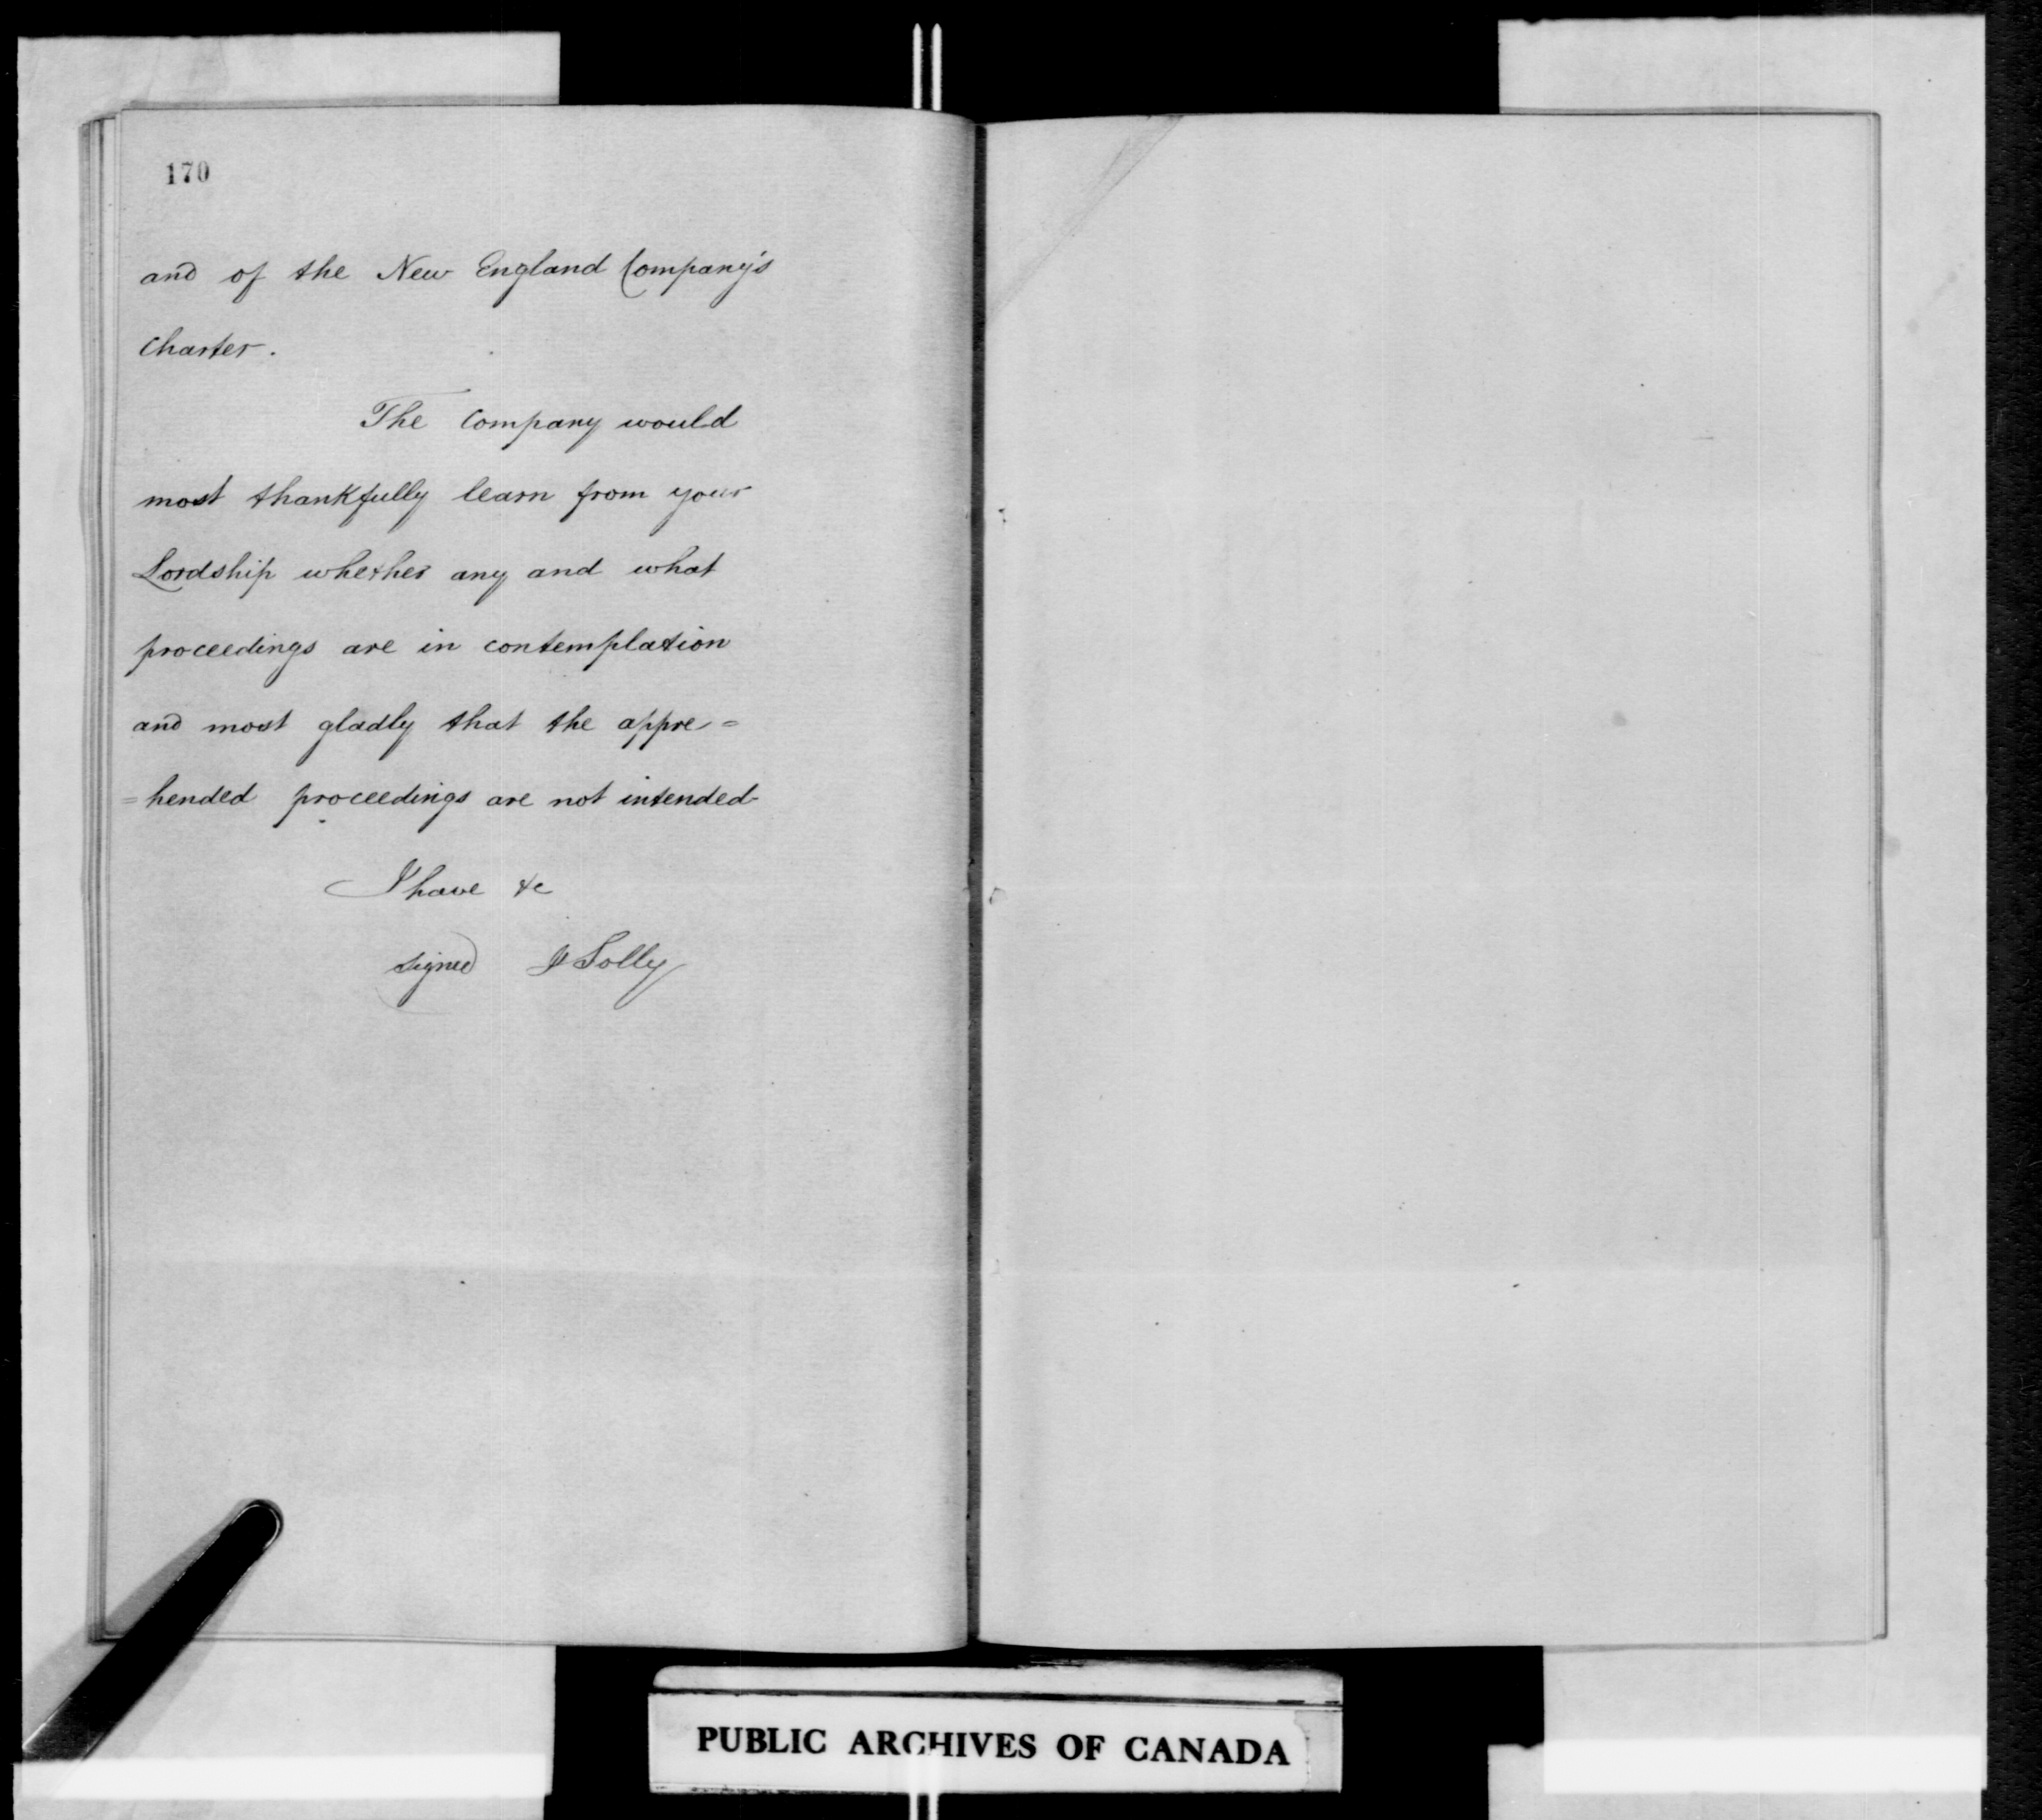 170
and of the New England Company's
Charter.
The Company would
most thankfully learn from your
Lordship whether any and what
proceedings are in contemplation
and most gladly that the appre=
=hended proceedings are not intended
I have &c
signed J Solly
PUBLIC ARCHIVES OF CANADA